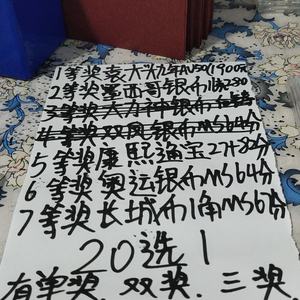 1等奖袁大头九年AU50/1900元
2等奖墨西哥银币
3等奖大力神银币
4等奖双凤银币MS64分
5等奖康熙通宝27+82分
6等奖奥运银币MS64分
7等奖长城币1角MS67分
20选1
有单奖.双奖.三奖